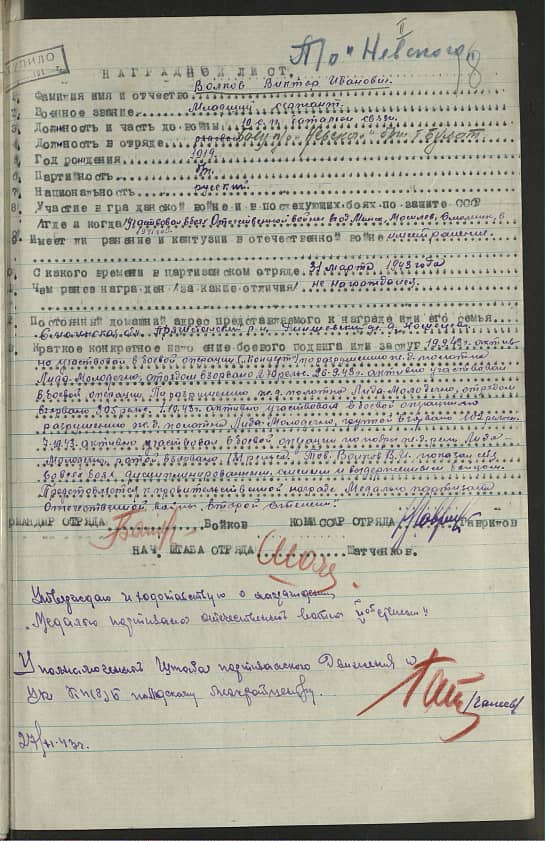 П/о "Невского"
НАГРАДНОЙ ЛИСТ.
Фамилия имя и отчество Волков Виктор Иванович.
2. Военное звание Младший сержант.
3. Должность и часть до войны 10 с.д. баталион связи
Должность в отряде
Год рождения 1919г.
Партийность
7. Национальность русский.
8. Участие в гражданской войне и в последующих боях по защите СССР
/где и когда/ участвовал в боях Отечественной войны под Минск, Могилев,
9. Имеет ли ранение и контузии в отечественной войне имеет ранение.
С какого времени в партизанском отряде 31 марта 1943 года
Чем ранее награжден /за какие отличия/ не награждался.
Постоянный домашний адрес представляемого к награде или его семья
Смоленская обл.
Краткое конкретное изложение боевого подвига или заслуг 19.9.43г. актив-
но участвовал в боевой операции "Концерт" по разрушению ж.д. полотна
Лида-Молодечно, отрядом взорвано рельс. 26.9.43г. активно участвовал
в боевой операции по разрушению ж.д. полотна Лида-Молодечно, отрядом
взорвано 205 рельс. 1.10.43г. активно участвовал в боевой операции по
разрушению ж.д. полотна Лида-Молодечно, группой взорвано
7.11.43г. активно участвовал в боевой операции по ж.д. Лида-
Молодечно, взорвано Тов. Волков В.И. показал себя
во всех боях дисциплинированным, смелым и выдержанным бойцом.
Представляется к правительственной награде Медалью партизана
Отечественной войны второй степени.
КОМАНДИР ОТРЯДА Бойков КОМИССАР ОТРЯДА Гаврилов
НАЧ. ШТАБА ОТРЯДА Шатченков.
Утверждаю и ходатайствую о награждении
Медалью партизана отечественной войны II ой степени
Уполномоченный Штаба партизанского Движения и
ЦК КП(б)Б по Лидскому межрайцентру.
27/XI-43г.